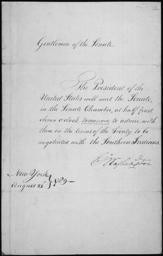 Gentlemen of the Senate.
The President of the
United States will meet the Senate,
in the Senate Chamber, at half past
eleven o'clock, tomorrow, to advise with
them on the terms of the Treaty to be
negotiated with the Southern Indians.
G. Washington
New York
August 21
1789